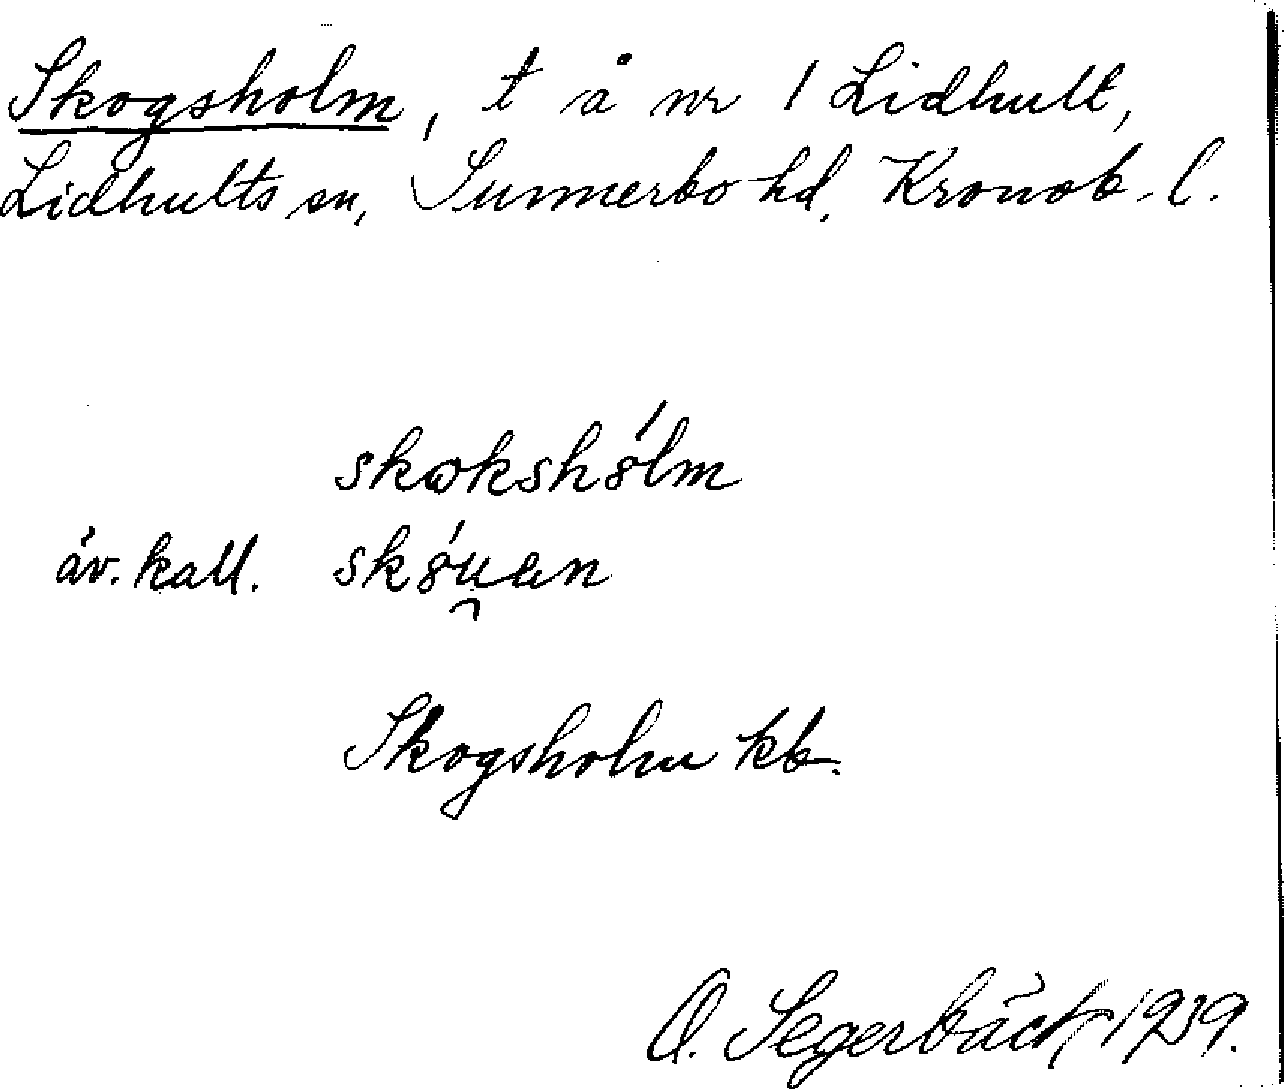 Skogsholm, t å nr 1 Lidhult,
Lidhults sn, Sunnerbo hd, Kronob. l.
skoksholm
äv. kall. skóu̯an
Skogsholm kb.
O. Segerbäck 1939.